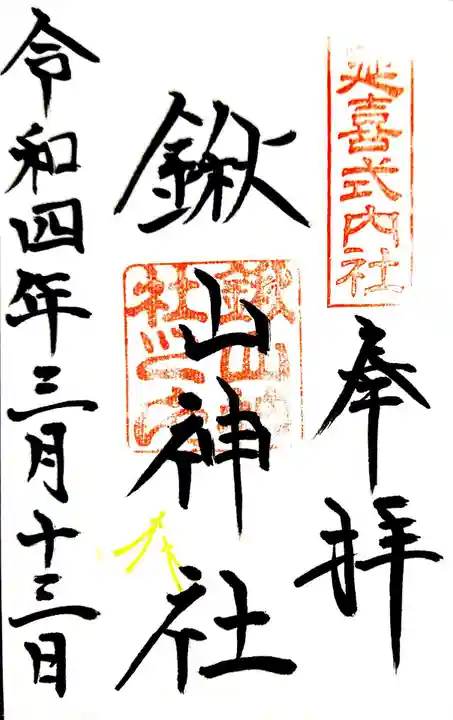 延喜式内社
奉拝
鍬山神社
鍬山神
社之印
令和四年三月十三日